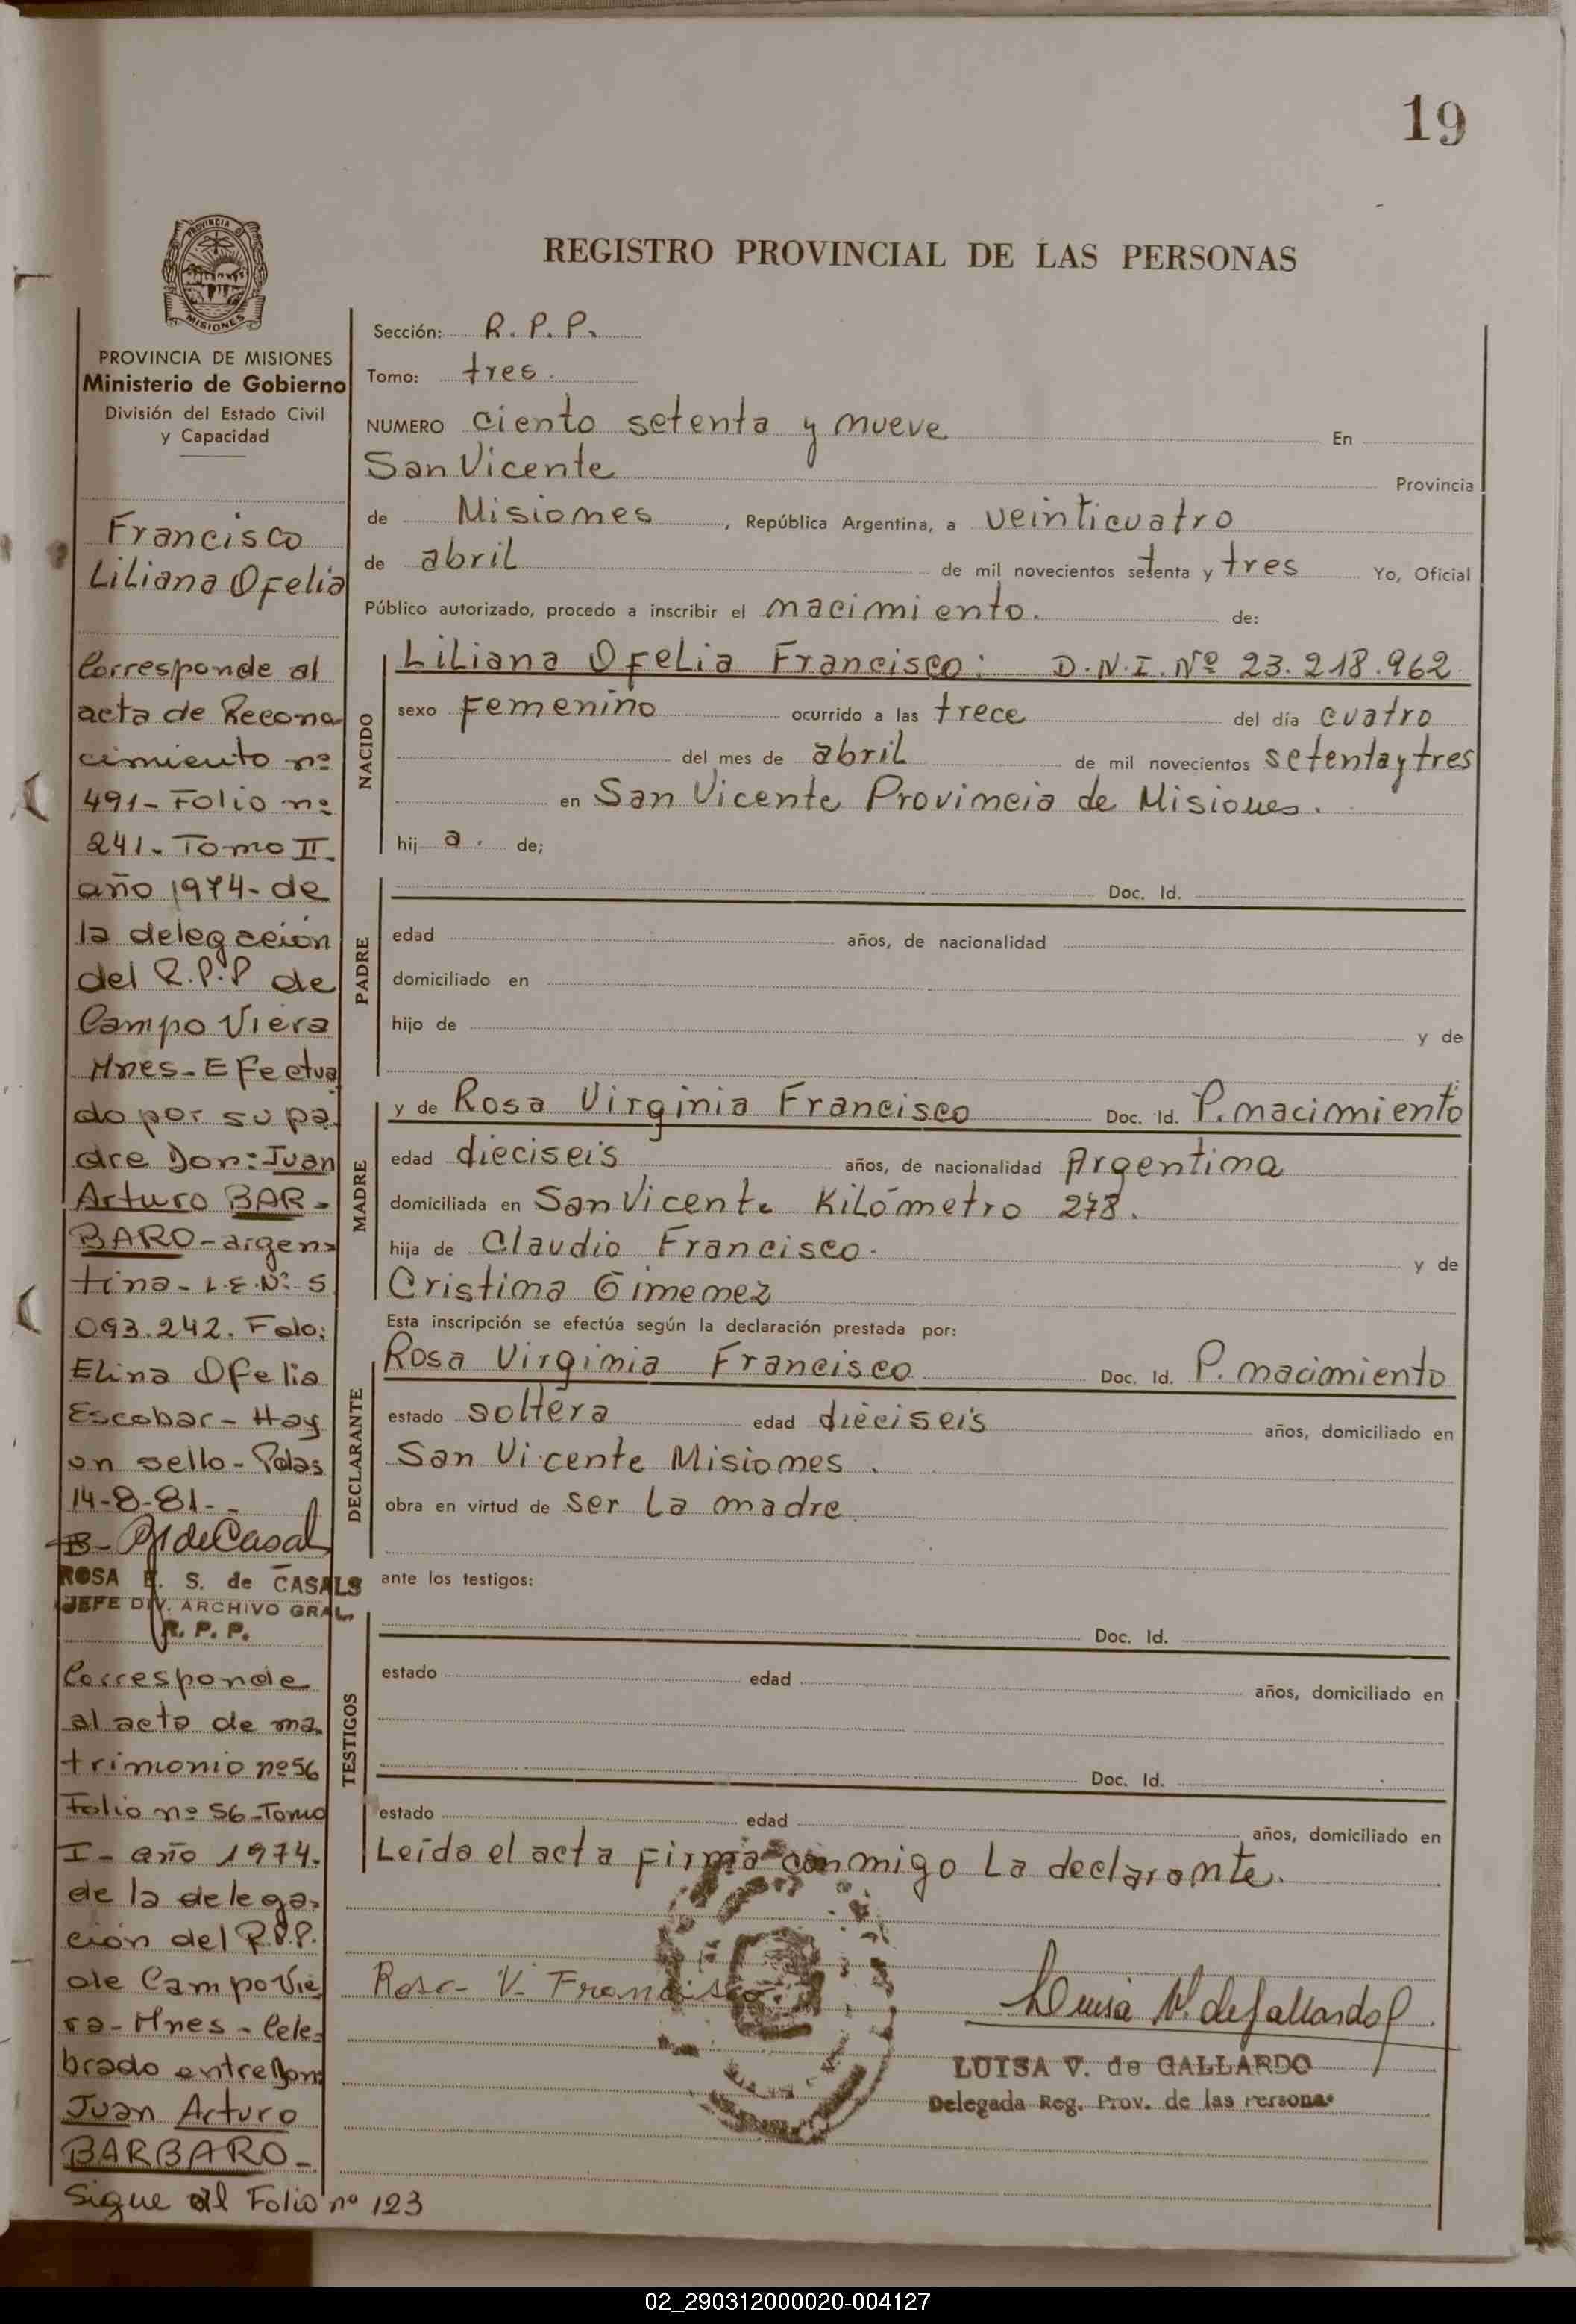 19
PROVINCIA D
MISIONES
REGISTRO PROVINCIAL DE LAS PERSONAS
PROVINCIA DE MISIONES
Ministerio de Gobierno
División del Estado Civil
y Capacidad
Francisco
Liliana Ofelia
Corresponde al
acta de Recono
cimiento nº
491- Folio nº
241- Tomo II-
año 1974- de
la delegación
del R.P.P de
Campo Viera
Mnes- Efectua
do por su pa
dre Don: Juan
Arturo BAR-
BARO-argen=
tino- L.E.Nº 5
093.242. Fdo:
Elina Ofelia
Escobar- Hay
un sello- Pdas
14-8-81--
ROSA E. S. de CASALS
JEFE DIV. ARCHIVO GRAL
R. P. P.
Corresponde
al acta de ma
trimonio nº56
Folio nº 56-Tomo
I- año 1974-
de la delega=
ción del R.P.P.
de Campo Vie
ra- Mnes- Cele=
brado entre Don:
Juan Arturo
BARBARO-
Sigue al Folio nº 123
Sección: R.P.P.
Tomo: tres.
NUMERO ciento setenta y nueve En
San Vicente Provincia
de Misiones, República Argentina, a veinticuatro
de abril de mil novecientos setenta y tres Yo, Oficial
Público autorizado, procedo a inscribir el nacimiento. de:
NACIDO
Liliana Ofelia Francisco: D.N.I.Nº 23.218.962
sexo femenino ocurrido a las trece del día cuatro
del mes de abril de mil novecientos setenta y tres
en San Vicente Provincia de Misiones.
hij a. de;
PADRE
Doc. Id.
edad años, de nacionalidad
domiciliado en
hijo de y de
MADRE
y de Rosa Virginia Francisco Doc. Id. P. nacimiento
edad dieciseis años, de nacionalidad Argentina
domiciliada en San Vicente Kilómetro 278.
hija de Claudio Francisco. y de
Cristina Gimenez
Esta inscripción se efectúa según la declaración prestada por:
DECLARANTE
Rosa Virginia Francisco Doc. Id. P. nacimiento
estado soltera edad dieciseis años, domiciliado en
San Vicente Misiones.
obra en virtud de ser la madre.
ante los testigos:
TESTIGOS
Doc. Id.
estado edad años, domiciliado en
Doc. Id.
estado edad años, domiciliado en
Leída el acta firma conmigo la declarante.
Rosa V. Francisco
Luisa V. de Gallardo
LUISA V. de GALLARDO
Delegada Reg. Prov. de las Personas
02_290312000020-004127